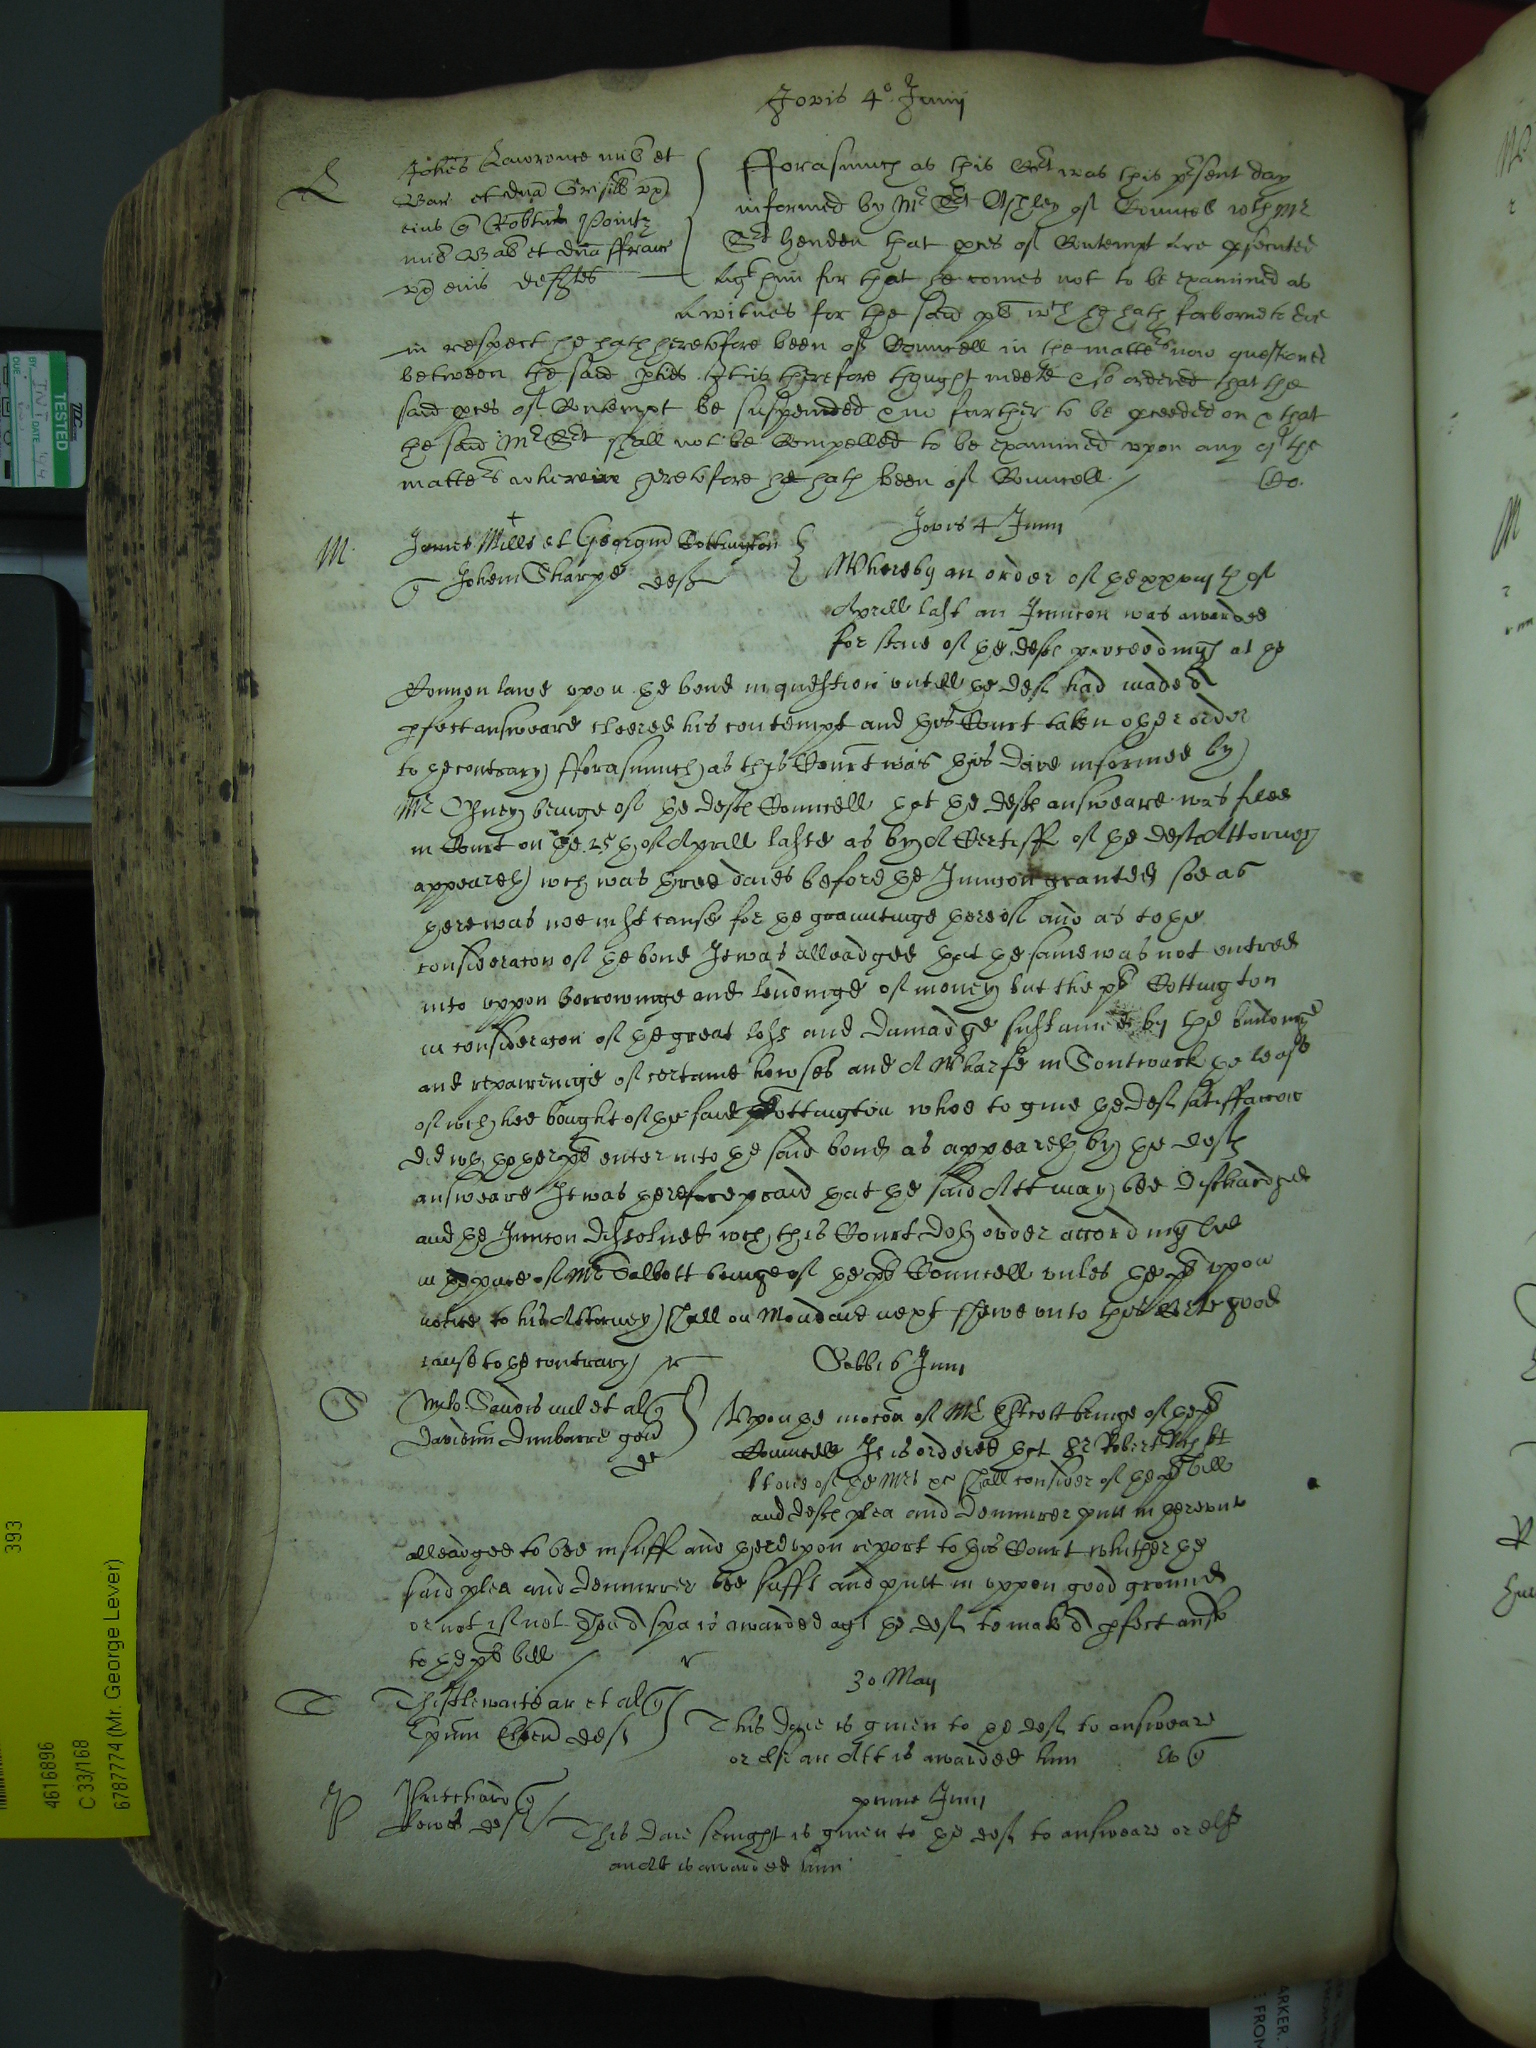 Jovis 4o Junij
L
Johes Lawrence mil et
Bar et dna Grisill ux
eius Robtus Pointz
mil Bal et dna ffrance
ux eius defftes
fforasmuch as this Crt was this psent day
informed by Mr Srt Ashley of Councell wth Mr
Srt Henden that pces of Contempt are psecuted
agt him for that he comes not to be examined as
a witnes for the said pl wch he hath forborne to doe
in respect he hath heretofore been of Councell in the matters now questioned
between the said pties It is therefore thought meete & so ordered that the
said pces of Contempt be suspended & no further to be pceeded on & that
the said Mr Srt shall not be Compelled to be examined upon any of the
matters wherein heretofore he hath been of Councell
M
James Mills et Georgiu Cottington
Johem Sharpe deft
Jovis 4 Junij
Whereby an order of the xxviijth of
Aprill last an Junccon was awarded
for staie of the deftes proceedings at the
Common lawe upon the bond in question untill the deft had made a
pfect answeare cleered his contempt and this Court taken other order
to the contrary fforasmuch as this Court was this daie informed by
Mr Chney beinge of the deftes Councell that the deftes answeare was filed
in Court on the 25th of Aprill laste as by a Certiff of the deftes Attorney
appeareth wch was three daies before the Junccon granted soe as
there was noe iust cause for the grauntinge thereof and as to the
consideracon of the bond It was alleadged that the same was not entred
into uppon borrowinge and lendinge of money but the pl Cottington
in consideracon of the great losse and damadge sustained by the buildinge
and repairinge of certaine howses and a Wharfe in Southwark the lease
of wch hee bought of the said Cottington whoe to give the deft satisfaccon
did wth the other pl enter into the said bond as appeareth by the deftes
answeare It was therefore praied that the said Att may bee discharged
and the Junccon dissolved wch this Court doth order accordinglie
in the pnce of Mr Talbott beinge of the pl Councell unles the pl upon
notice to his Attorney shall on Mondaie next shewe unto this Court good
cause to the contrary
Sabbi 6 Junij
S
Myl Sandis mil et al
Davidem Dunbarre gen
de
Upon the mocon of Mr Estcott beinge of the pl
Councell It is ordered that Sr Robert Rich kt
one of the Mrs &c shall consider of the pl bill
and deftes plea and demurrer putt in thereunto
alleadged to bee insuff and thereupon report to this Court whether the
said plea and demurrer bee suff and putt in uppon good grounde
or not if not then a spa is awarded agt the deft to make a pfect answ
to the pl bill
T
Thistlewaite ar et al
deft
30 May
This daie is given to the deft to answeare
or els an Att is awarded him
P
Pritchard
Lewes deft
primo Junij
This daie senight is given to the deft to answeare or else
an Att is awarded him
TESTED
DATE
BY
DUE
393
4616896
C 33/168
6787774 (Mr. George Lever)
ARKER.
FROM